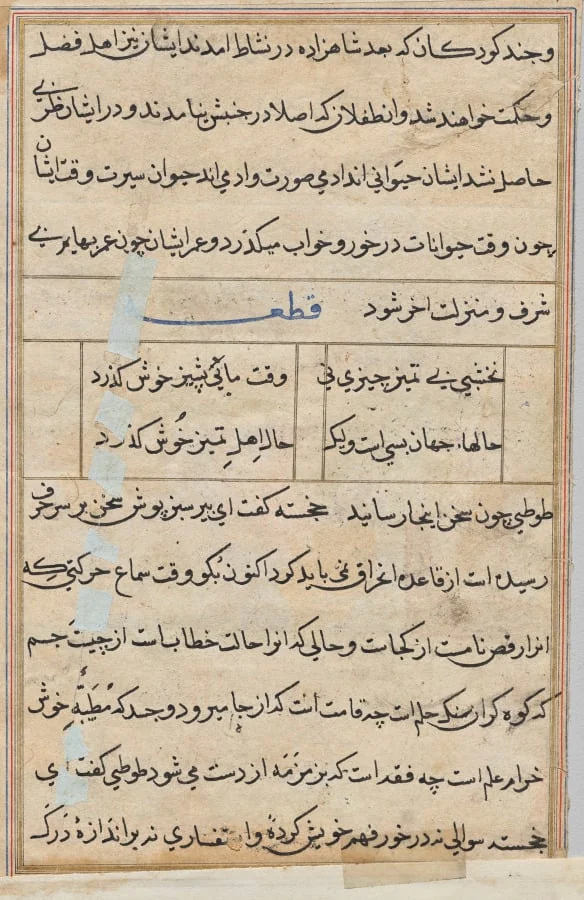 و چند کودکان که بعد شاهزاده در نشاط امدند ایشان نیز اهل فضل
و حکمت خواهند شد و انطفلان که اصلا در جنبش نیامدند و در ایشان طربی
حاصل نشد ایشان حیوانی اند ادمی صورت و ادمی اند حیوان سیرت وقت ایشان
چون وقت حیوانات در خور و خواب میکذرد و عمر ایشان چون عمر بهایم بی
شرف و منزلت اخر شود قطعه
نخشبی بی تمیز چیزی نی وقت با تمیز خوش کذرد
حالها جهان بسی است ولیک حال اهلِ تمیز خُوش کذرد
طوطی چون سخن اینجا رسانید خجسته کفت ای پیر سبز پوش سخن بر سر حرف
رسیده است از قاعده انحراق نمی باید کرد اکنون بکو وقت سماع حرکتی که
انرا رقص نامست از کجاست و حالی که انوا حالت خطاب است از چیست جسم
که کوه کران سنک حلم است چه قامت است که از جا میرود و جد که مُطَیَّه خوش
خرام علم است چه فقد است که بزمزمَه از دست می شود طوطی کفت ای
خجسته سوالی نه در خور فهم خویش کردهٔ و استفساری نه بر اندازهٔ دَرَک